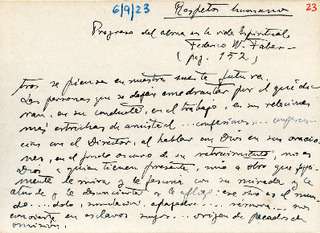 6/9/23
Respetos humanos
23
Progreso del alma en la vida Espiritual
Federico W. Faber -
(pag. 152)
tros se piensa en nuestra suerte futura.
Las personas que se dejan amedrantar por el qué di-
ran, en su conducta, en el trabajo, en sus relaciones
más estrechas de amistad... confesiones...
cias con el Director, al hablar con Dios en sus oracio-
nes, en el fondo oscuro de su retraimiento, no es
Dios a quien tienen presente, sino a otro que
mente le mira y le persigue con su mirada y le
aturde y le desconcierta y le aflige: ese otro es el mun-
do... dolo, simulación,
convierte en esclavos suyos... origen de pecados de
omisión.